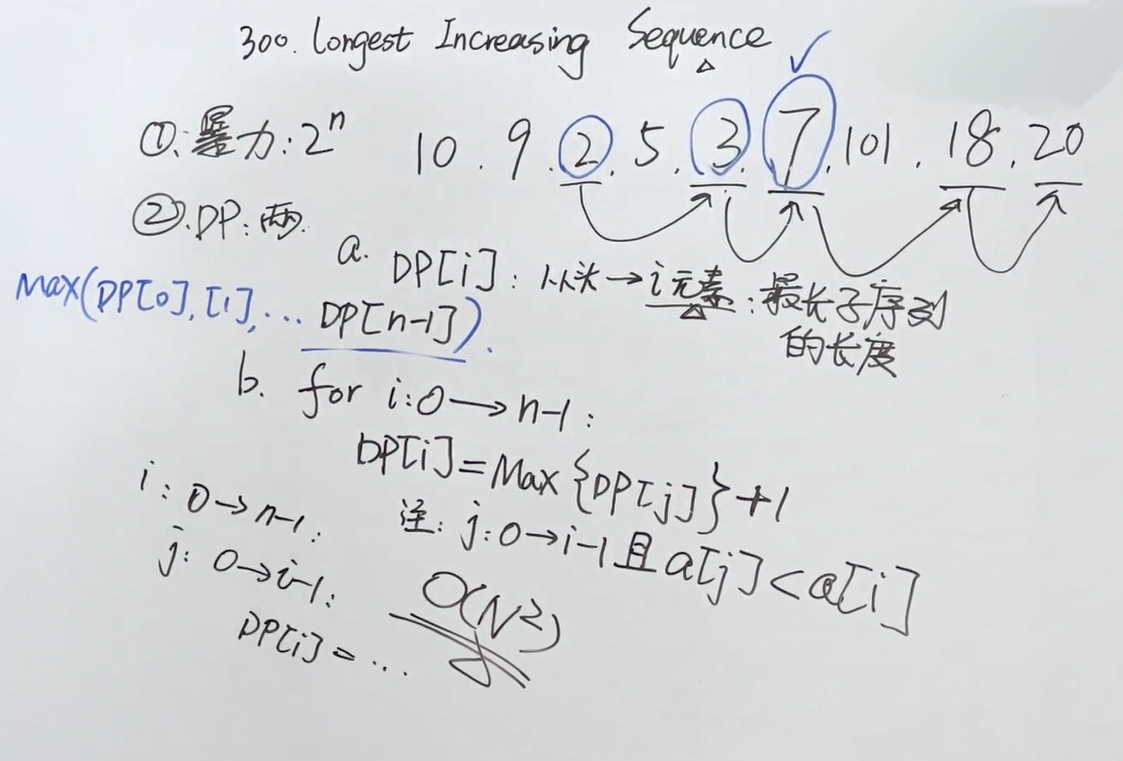 300. Longest Increasing Sequence
①: 暴力: 2ⁿ
10. 9. 2. 5. 3. 7. 101. 18. 20
②. DP: 两.
a. DP[i]: 从头→i元素: 最长子序列
的长度
Max(DP[0], [1], ... DP[n-1]).
b. for i:0→n-1:
DP[i]=Max{DP[j]}+1
注: j:0→i-1且a[j]<a[i]
i: 0→n-1:
j: 0→i-1:
DP[i] = ...
O(N²)